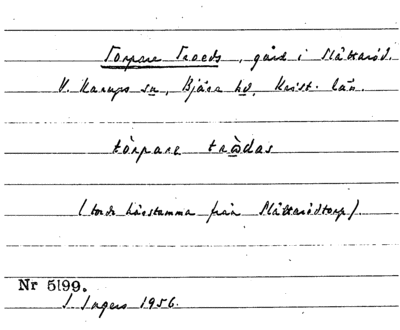 Torpare Troeds, gård i Slättaröd.
V. Karups sn, Bjäre hd, Krist. län.
tòrpare tròdas
(torde härstamma från Slättarödtorp).
Nr 5199.
I. Ingers 1956.